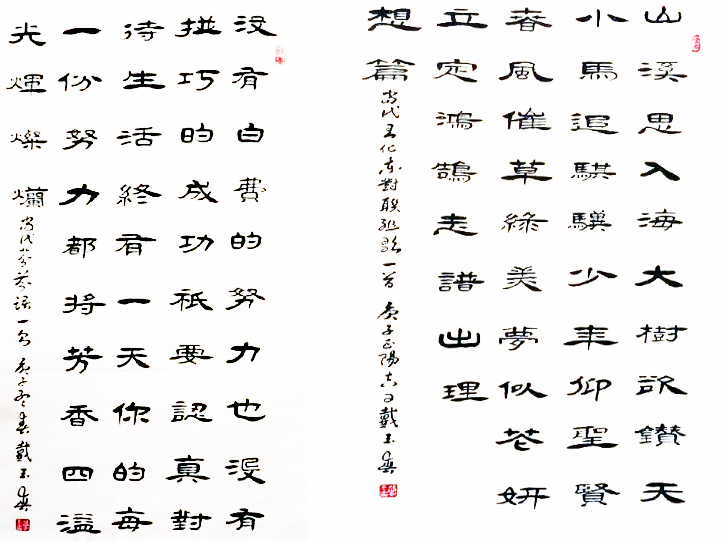 山溪思入海大樹欲鑽天
小馬追騏驥少年仰聖賢
春風催草綠美夢似花妍
立定鴻鵠志譜出理
想篇 當代王化東對聯 一首 庚子正陽吉日戴玉
沒有白費的努力也沒有
掽巧的成功祇要認真對
待生活終有一天你的每
一份努力都將芳香四溢
光煇燦爛 當代 語一句 庚子 戴玉